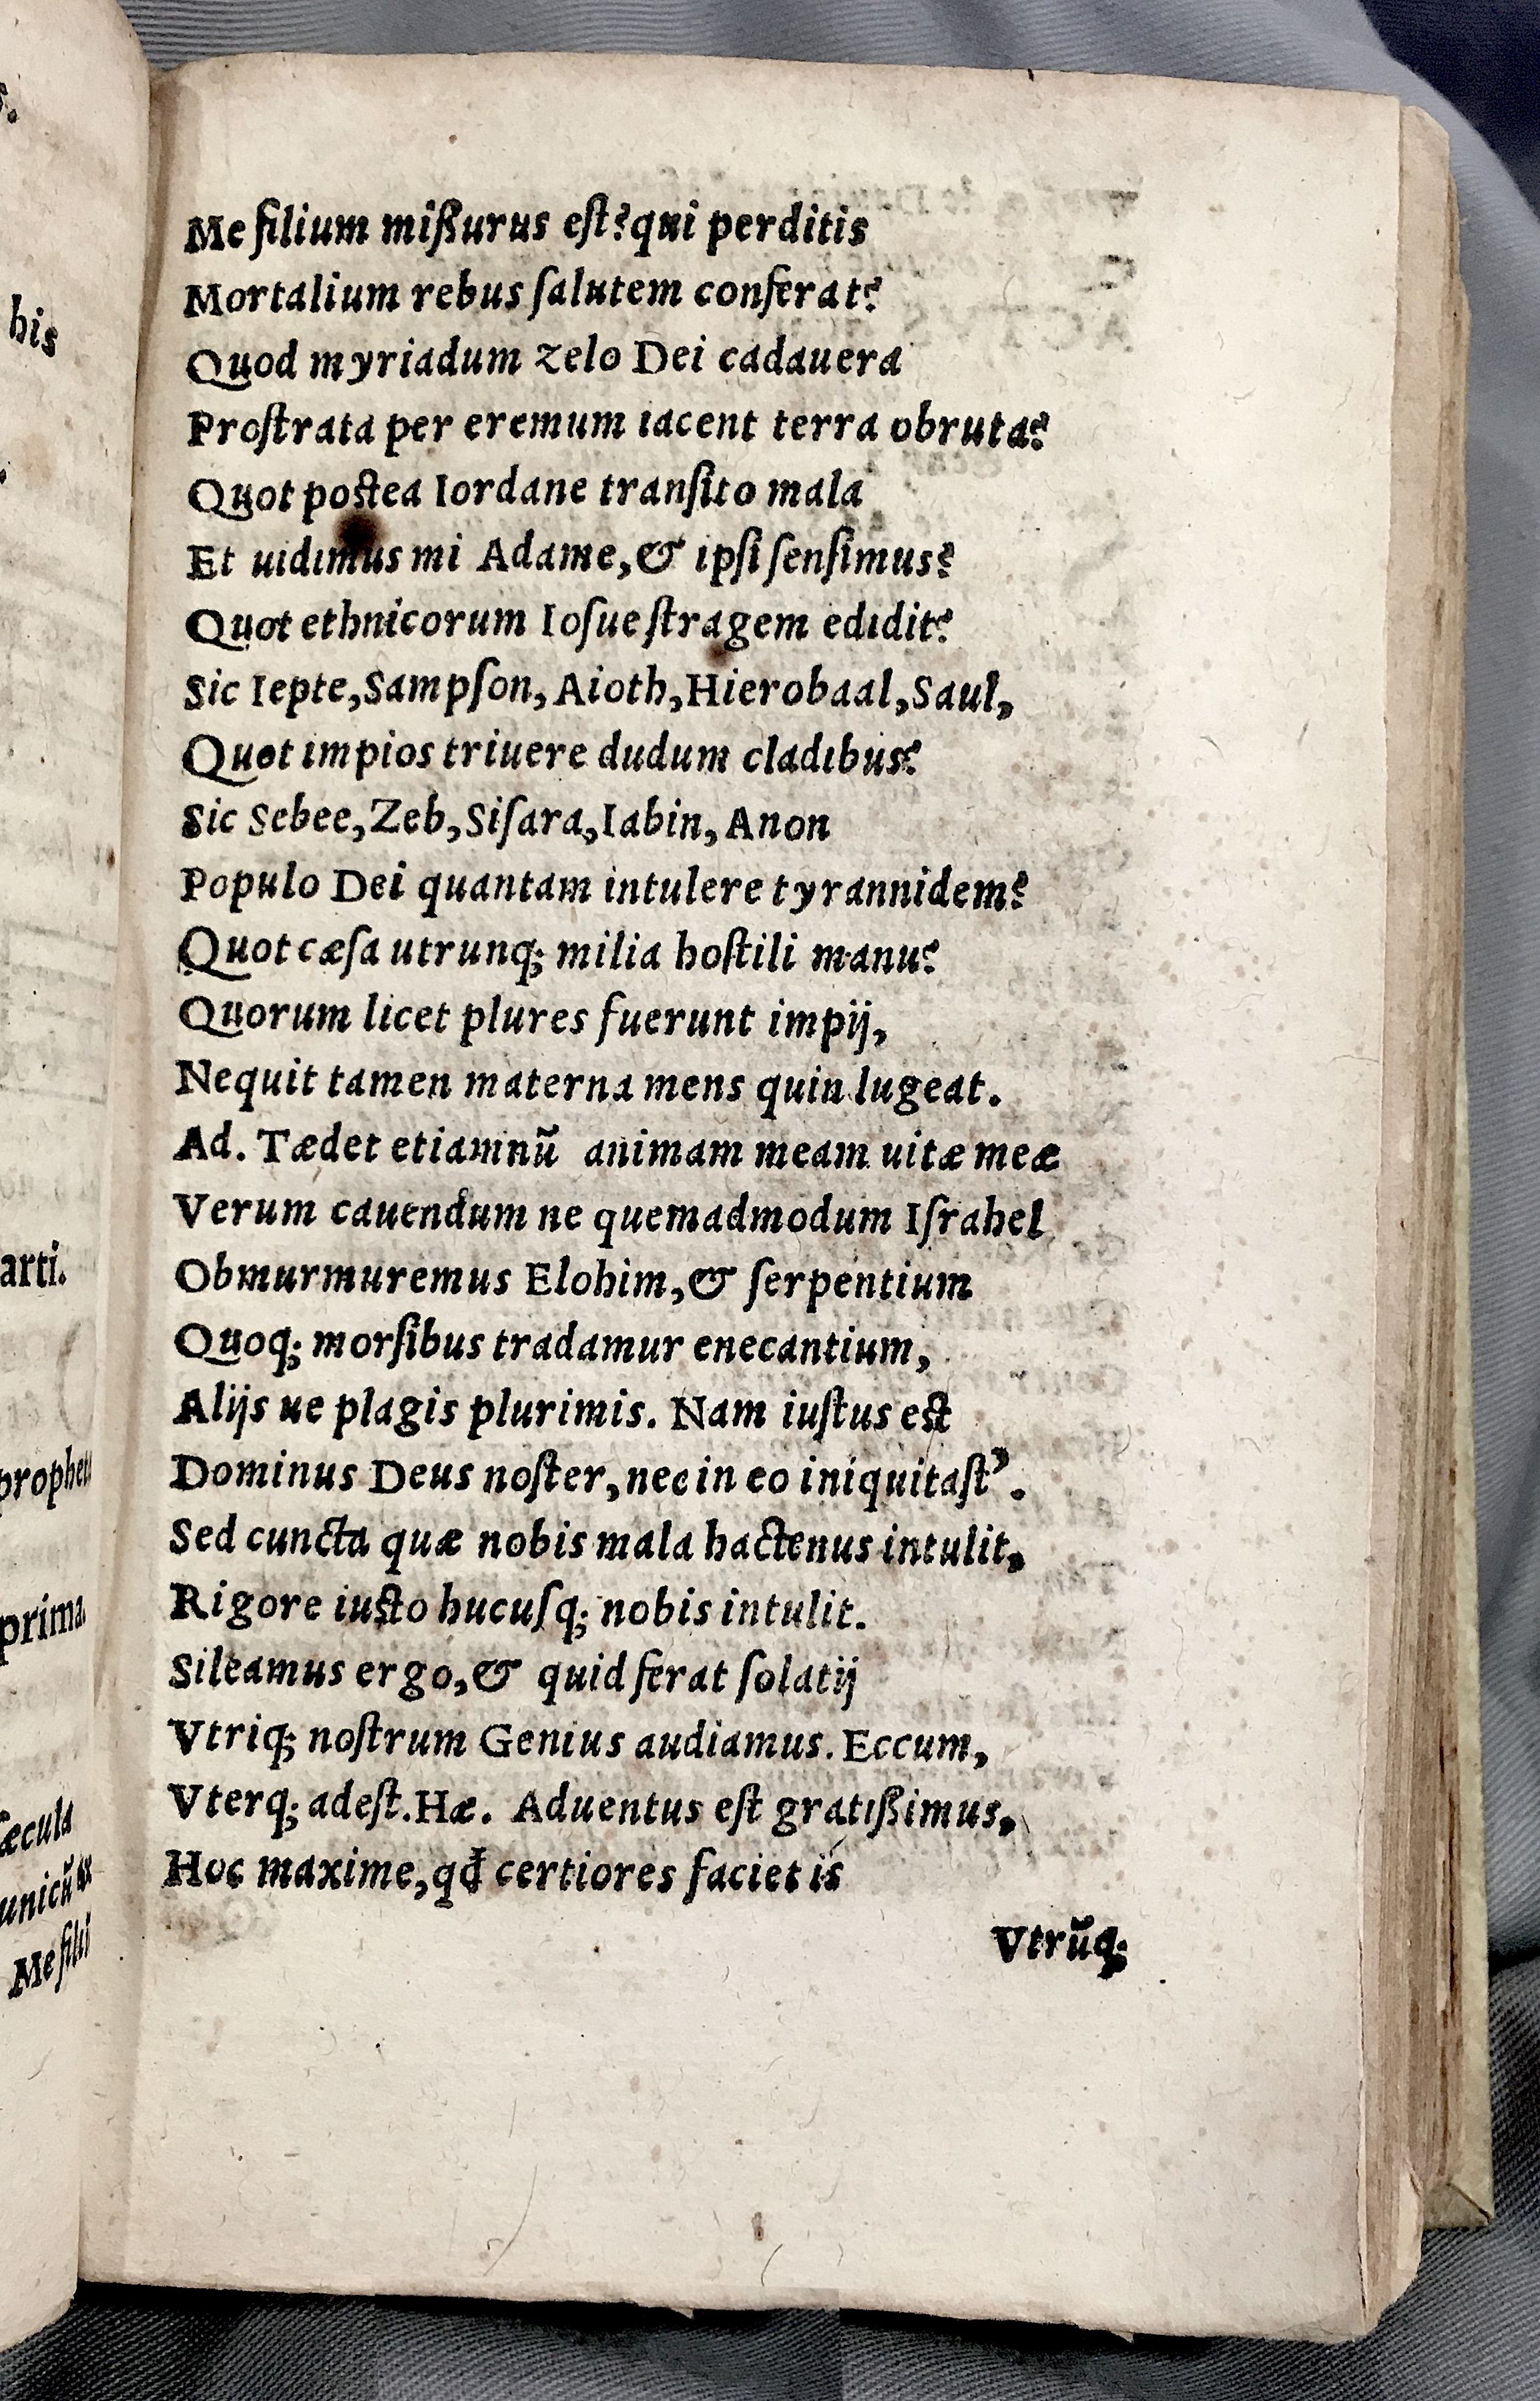 s.
his
arti.
prophet
prima
sæcula
unicũ
Me fili
Me filium mißurus est? qui perditis
Mortalium rebus ſalutem conferat?
Quod myriadum zelo Dei cadauera
Proſtrata per eremum iacent terra obruta?
Quot postea Iordane tranſito mala
Et uidimus mi Adame, & ipſi ſenſimus?
Quot ethnicorum Ioſue ſtragem edidit?
Sic Iepte, Sampſon, Aioth, Hierobaal, Saul,
Quot impios triuere dudum cladibus?
Sic Sebee, Zeb, Siſara, Iabin, Anon
Populo Dei quantam intulere tyrannidem?
Quot cæſa utrunq; milia hoſtili manu?
Quorum licet plures fuerunt impij,
Nequit tamen materna mens quin lugeat.
Ad. Tædet etiamnũ animam meam uitæ meæ
Verum cauendum ne quemadmodum Iſrahel
Obmurmuremus Elohim, & ſerpentium
Quoq; morſibus tradamur enecantium,
Alijs ue plagis plurimis. Nam iuſtus est
Dominus Deus noſter, nec in eo iniquitaſt'.
Sed cuncta quæ nobis mala hactenus intulit,
Rigore iusto hucuſq; nobis intulit.
Sileamus ergo, & quid ferat ſolatij
Vtriq; noſtrum Genius audiamus. Eccum,
Vterq; adeſt. Hæ. Aduentus eſt gratißimus,
Hoc maxime, qđ certiores faciet is
Vtrũq;